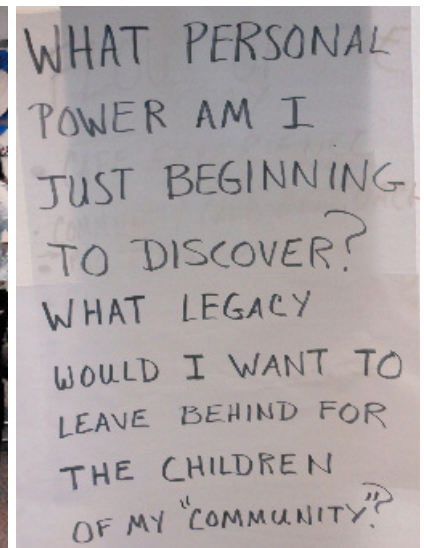 WHAT PERSONAL
POWER AM I
JUST BEGINNING
TO DISCOVER?
WHAT LEGACY
WOULD I WANT TO
LEAVE BEHIND FOR
THE CHILDREN
OF MY "COMMUNITY"?